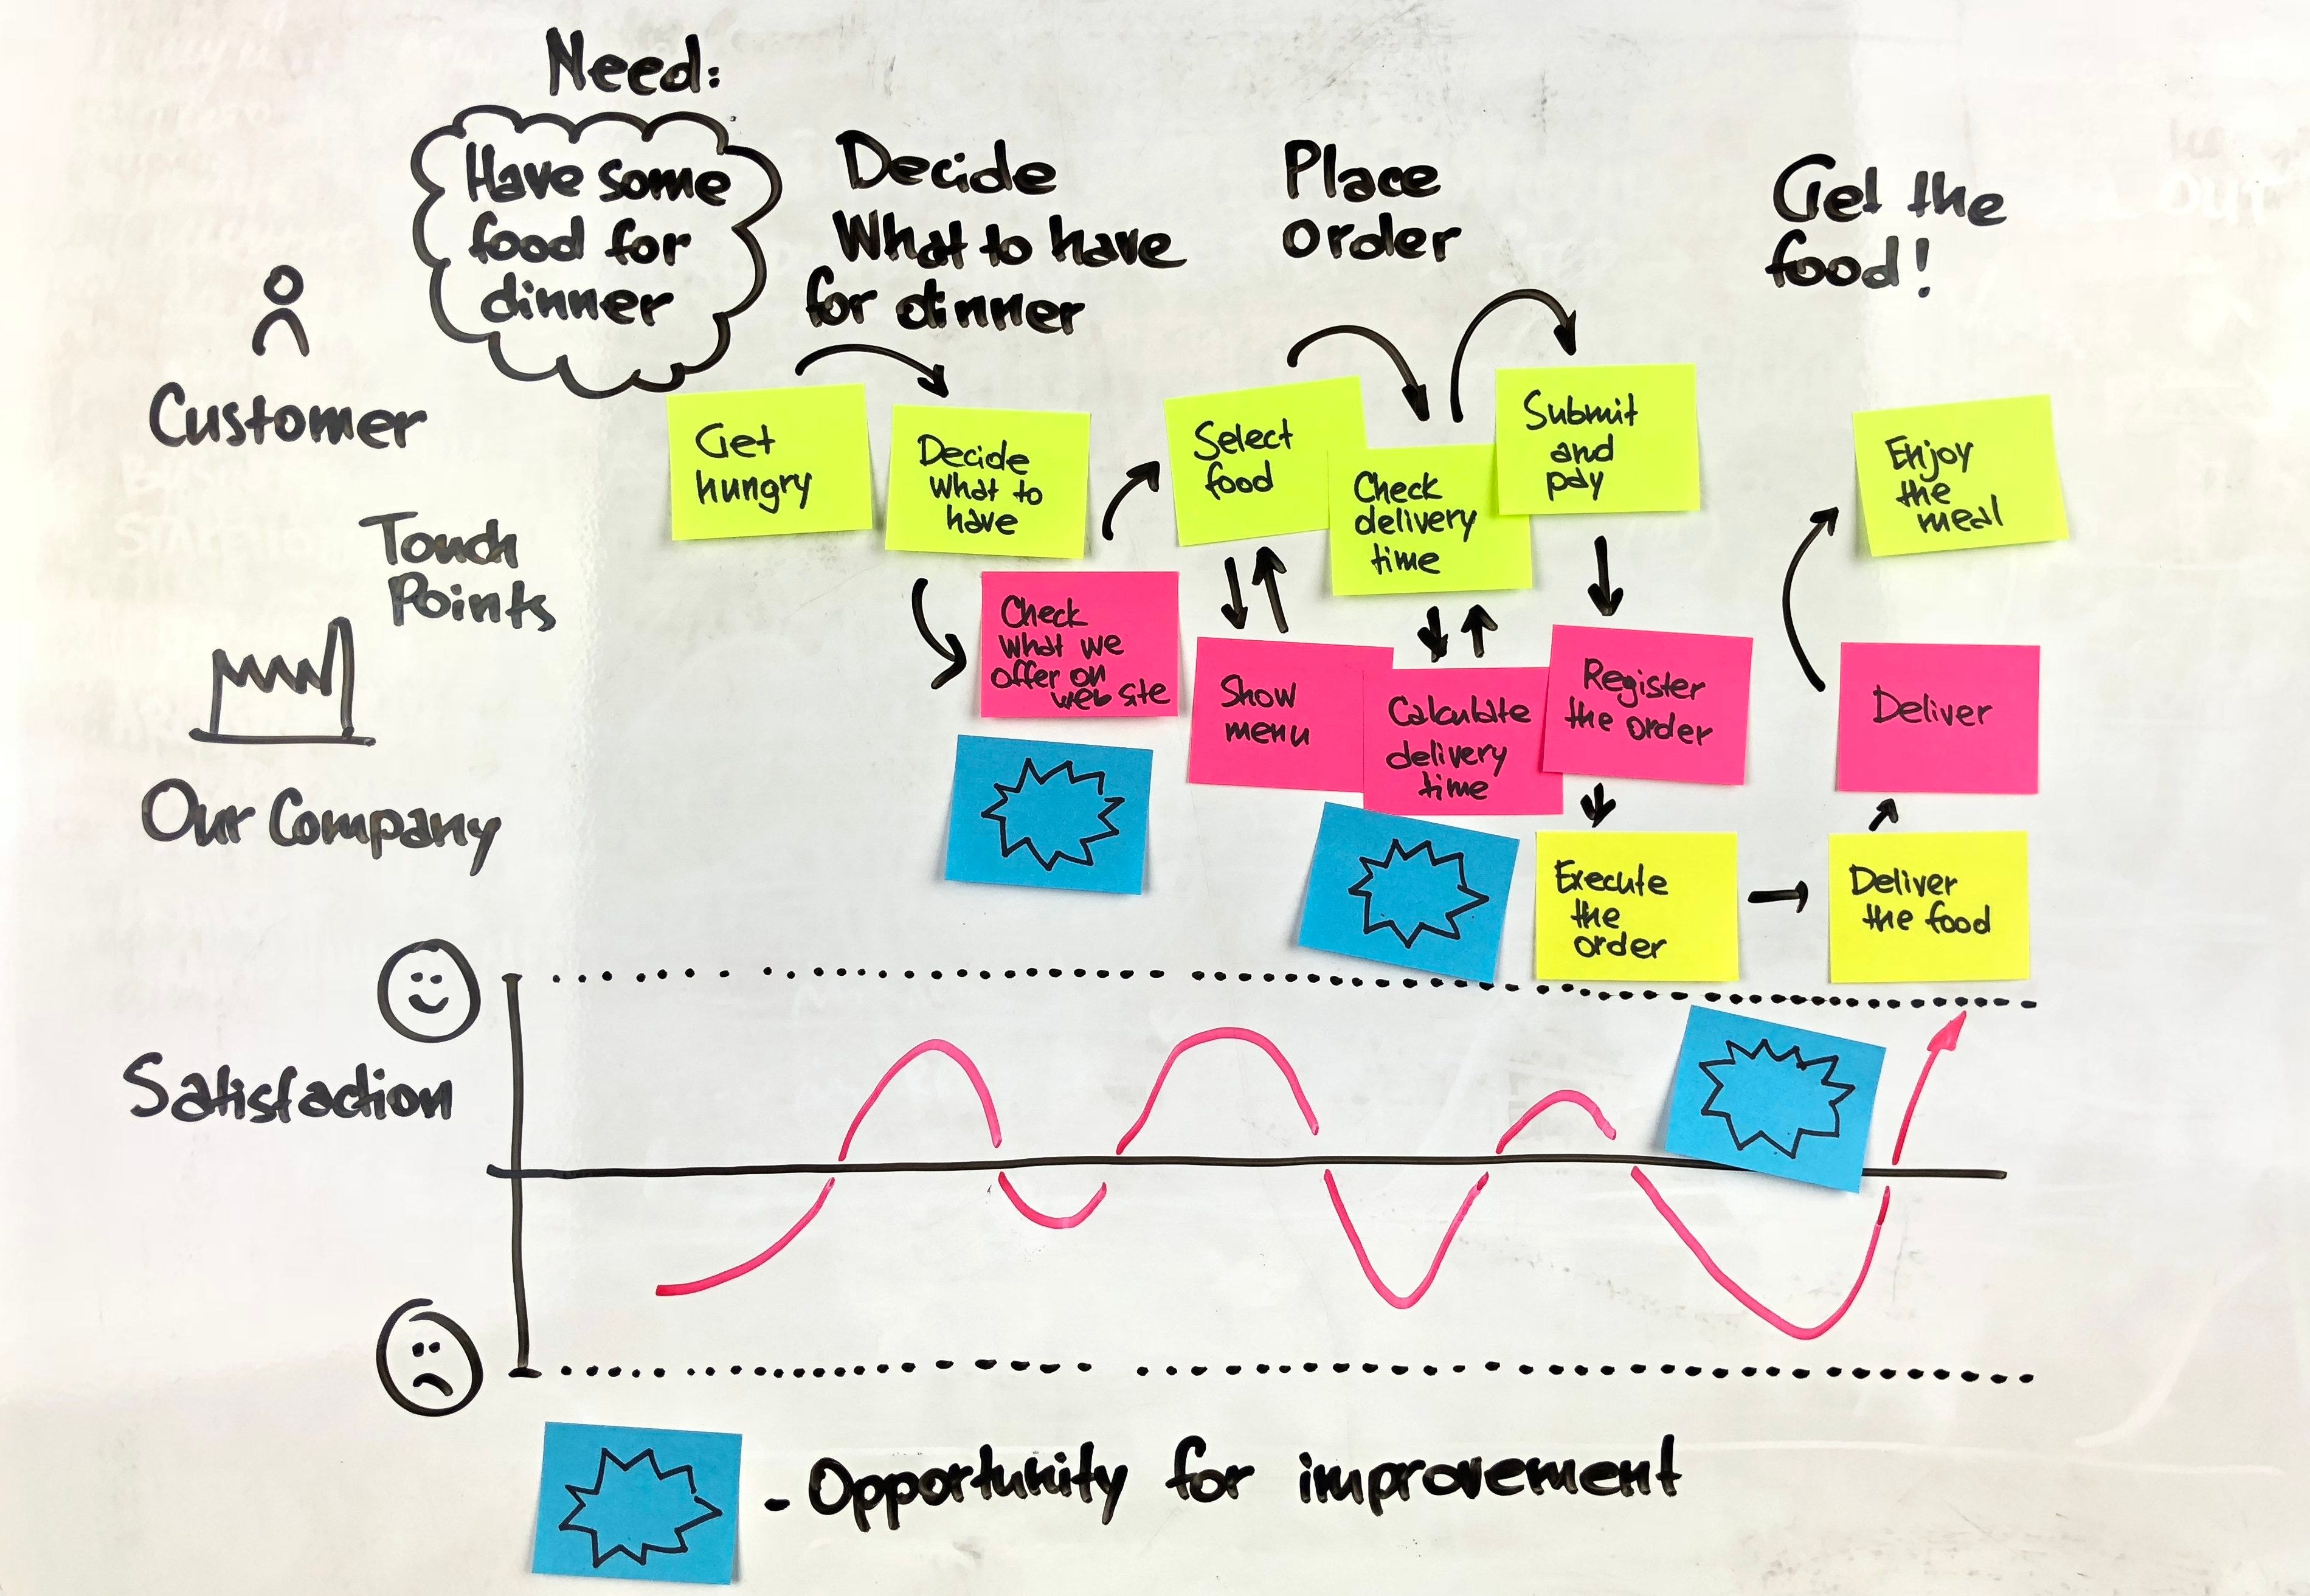 Need:
Have some
food for
dinner
Decide
What to have
for dinner
Place
order
Get the
food!
Customer
Get
hungry
Decide
What to
have
Select
food
Check
delivery
time
Submit
and
pay
Enjoy
the
meal
Touch
Points
Check
what we
offer on
web site
Show
menu
Calculate
delivery
time
Register
the order
Deliver
Our Company
Execute
the
order
Deliver
the food
Satisfaction
- Opportunity for improvement